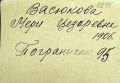 Васюкова
Мери Цезаревна
1906
Погранични 95